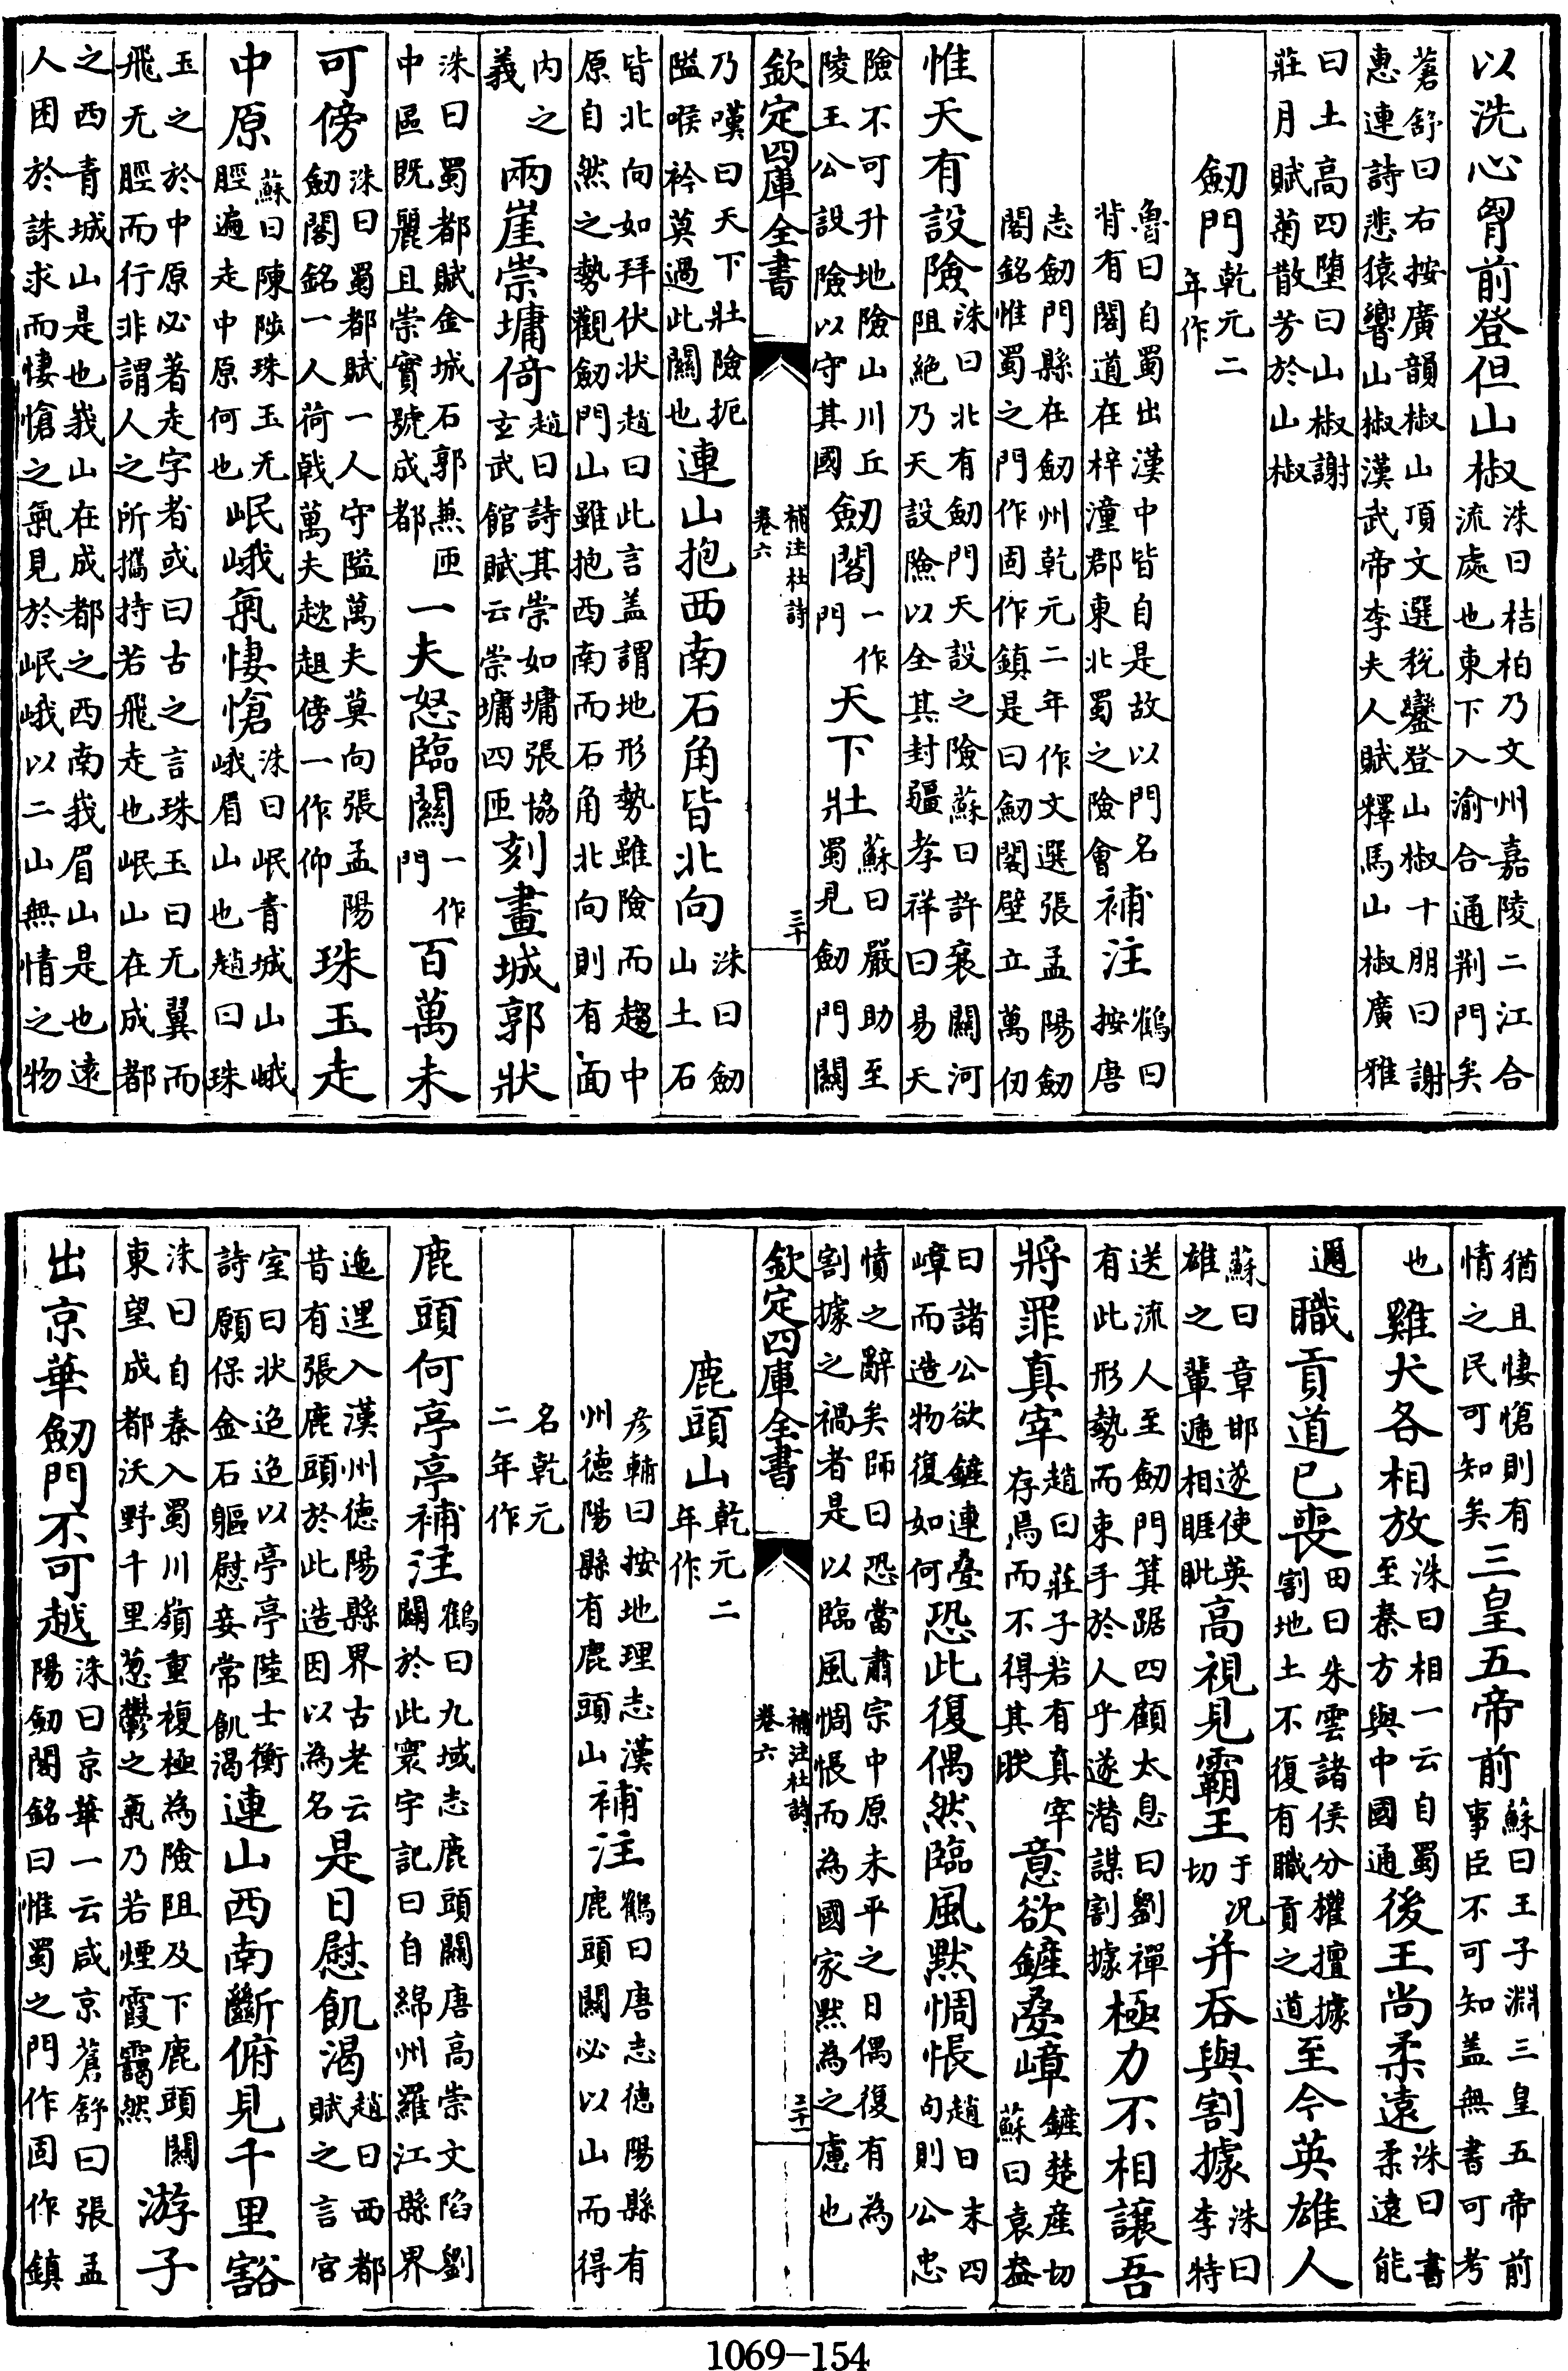 以洗心胷前登但山椒洙曰桔柏乃文州嘉陵二江合流處也東下入渝合通荆門矣
蒼舒曰右按廣韻椒山頂文選税鑾登山椒十朋曰謝惠連詩悲猿響山椒漢武帝李夫人賦釋馬山椒廣雅
曰土高四墮曰山椒謝莊月賦菊散芳於山椒
劒門乾元二年作
魯曰自蜀出漢中皆自是故以門名背有閣道在梓潼郡東北蜀之險會補注鶴曰按唐
志劒門縣在劒州乾元二年作文選張孟陽劒閣銘惟蜀之門作固作鎮是曰劒閣壁立萬仞
惟天有設險洙曰北有劒門天設之險蘇曰許褒關河阻絶乃天設險以全其封疆孝祥曰易天
險不可升地險山川丘陵王公設險以守其國劒閣一作門天下壯蘇曰嚴助至蜀見劒門關
欽定四庫全書 補注杜詩卷六 三十
乃嘆曰天下壯險扼隘喉衿莫過此關也連山抱西南石角皆北向洙曰劒山土石
皆北向如拜伏状趙曰此言盖謂地形勢雖險而趨中原自然之勢觀劒門山雖抱西南而石角北向則有面
内之義兩崖崇墉倚趙曰詩其崇如墉張協玄武館賦云崇墉四匝刻畫城郭狀
洙曰蜀都賦金城石郭兼匝中區既麗且崇實號成都一夫怒臨關一作門百萬未
可傍洙曰蜀都賦一人守隘萬夫莫向張孟陽劒閣銘一人荷戟萬夫趑趄傍一作仰珠玉走
中原蘇曰陳陟珠玉无脛遍走中原何也岷峨氣悽愴洙曰岷青城山峨峨眉山也趙曰珠
玉之於中原必著走字者或曰古之言珠玉曰无翼而飛无脛而行非謂人之所攜持若飛走也岷山在成都
之西青城山是也峩山在成都之西南峩眉山是也遠人困於誅求而悽愴之氣見於岷峨以二山無情之物
猶且悽愴則有情之民可知矣三皇五帝前蘇曰王子淵三皇五帝前事臣不可知盖無書可考
也雞犬各相放洙曰相一云自蜀至秦方與中國通後王尚柔遠洙曰書柔遠能
邇職貢道已喪田曰朱雲諸侯分權擅據割地土不復有職貢之道至今英雄人
蘇曰章邯遂使英雄之輩遞相睚眦高視見霸王于况切并吞與割據洙曰李特
送流人至劒門箕踞四顧太息曰劉禪有此形勢而束手於人乎遂潛謀割據極力不相讓吾
將罪真宰趙曰莊子若有真宰存焉而不得其眹意欲鏟疊嶂鏟楚産切蘇曰袁盎
曰諸公欲鏟連疊嶂而造物復如何恐此復偶然臨風默惆悵趙曰末四句則公忠
憤之辭矣師曰恐當肅宗中原未平之日偶復有為割據之禍者是以臨風惆悵而為國家默為之慮也
欽定四庫全書 補注杜詩卷六 三十一
鹿頭山乾元二年作
彦輔曰按地理志漢州德陽縣有鹿頭山補注鶴曰唐志德陽縣有鹿頭關必以山而得
名乾元二年作
鹿頭何亭亭補注鶴曰九域志鹿頭關唐高崇文䧟劉闢於此寰宇記曰自綿州羅江縣界
迤逕入漢州德陽縣界古老云昔有張鹿頭於此造因以為名是日慰飢渴趙曰西都賦之言宫
室曰状迢迢以亭亭陸士衡詩願保金石軀慰妾常飢渴連山西南斷俯見千里豁
洙曰自秦入蜀川嶺重複極為險阻及下鹿頭關東望成都沃野千里葱鬱之氣乃若煙霞靄然游子
出京華劒門不可越洙曰京華一云咸京蒼舒曰張孟陽劒閣銘曰惟蜀之門作固作鎮
1069-154